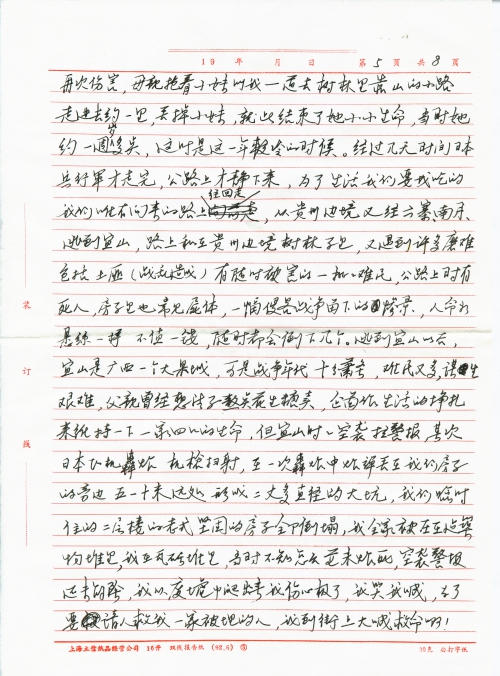 19 年 月 日 第 5 页 共 8 页
再次伤害，母亲抱着小妹叫我一道去树林里荒山的小路
走进去约一里，丢掉小妹，就此结束了她小小生命，当时她
约一周岁多矣，这时是这一年较冷的时候。经过几天时间日本
兵行军才走完，公路上才静下来，为了生活我们要找吃的
我们唯有向来的路上往回走，从贵州边境又经六寨南丹
逃到宜山，路上和在贵州边境树林子里，又遇到许多磨难
包括土匪（战乱造成）有随时破害的一难民，公路上时有
死人，房子里也常见尸体，一幅侵略战争留下的惨景，人命如
悬丝一样 不值一钱，随时都会倒下几个。逃到宜山以后，
宜山是广西一个大县城，可是战争年代十分萧条，难民又多，谋生
艰难，父亲曾经想法子熬花生糖卖，企图做生活的挣扎
来维持一下一家四口的生命，但宜山时时空袭拉警报，其次
日本飞机轰炸 机枪扫射，在一次轰炸中炸弹丢在我们房子
的旁边五一十来远处 形成二丈多直径的大坑，我们临时
住的二层楼的老式坚固的房子全部倒塌，我全家被压在建筑
物堆里，我在瓦砾堆里，当时不知怎么并未炸死，空袭警报
还未解除，我从废墟中爬出来我伤心极了，我哭我喊，为了
要请人救我一家被埋的人，我到街上大喊救命啊！
装
订
线
上海立信纸品经营公司 16开 双线报告纸 (92.6) ⑤ 70克 公打字纸